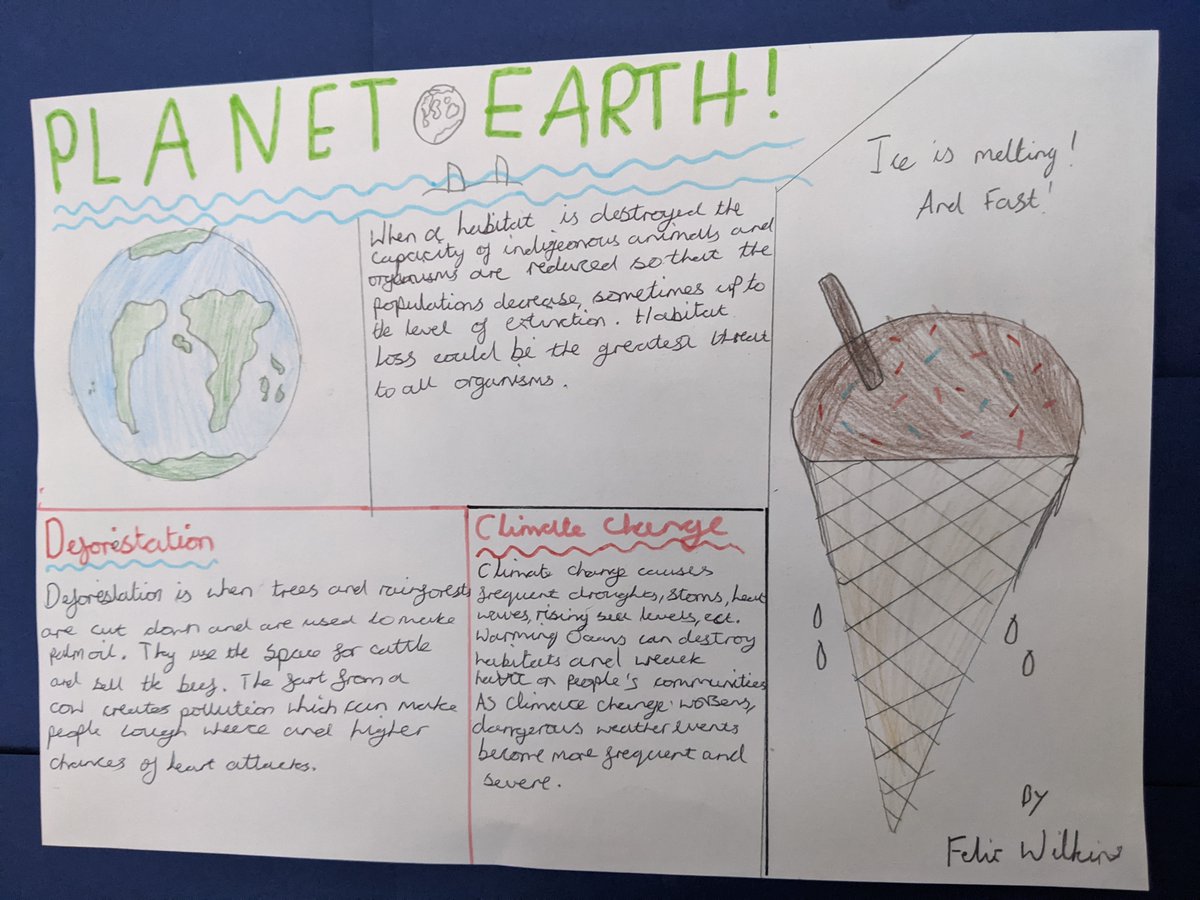 PLANET EARTH!
When a habitat is destroyed the
capacity of indigeonous animals and
organisms are reduced so that the
populations decrease, sometimes up to
the level of extinction. Habitat
loss could be the greatest threat
to all organisms.
Ice is melting!
And Fast!
Deforestation
Deforestation is when trees and rainforests
are cut down and are used to make
palm oil. They use the space for cattle
and sell the beef. The fart from a
cow creates pollution which can make
people cough wheeze and higher
chances of heart attacks.
Climate Change
Climate change causes
frequent droughts, storms, heat
waves, rising sea levels, ect.
Warming Oceans can destroy
habitats and wreak
on people's communities
As Climate change worsens,
dangerous weather events
become more frequent and
severe.
By
Felix Wilkins